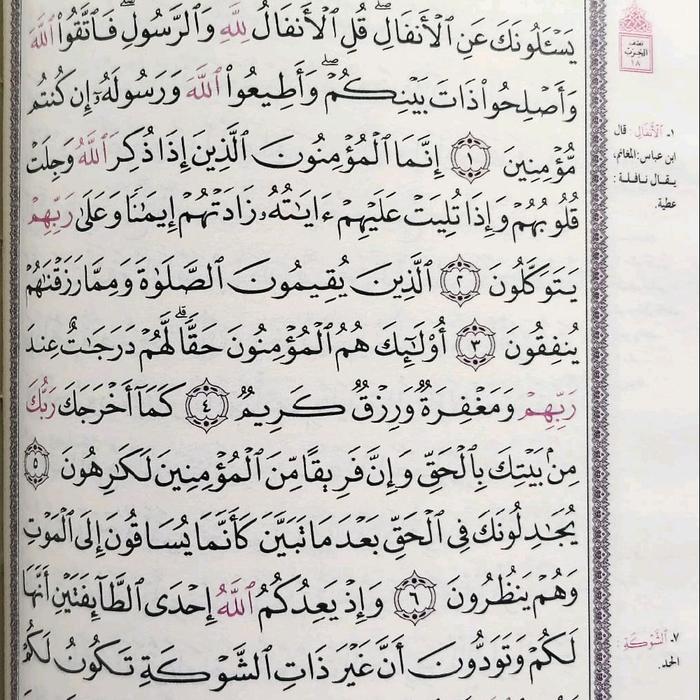 يَسْـَٔلُونَكَ عَنِ ٱلْأَنفَالِۖ قُلِ ٱلْأَنفَالُ لِلَّهِ وَٱلرَّسُولِۖ فَٱتَّقُوا۟ ٱللَّهَ
وَأَصْلِحُوا۟ ذَاتَ بَيْنِكُمْۖ وَأَطِيعُوا۟ ٱللَّهَ وَرَسُولَهُۥٓ إِن كُنتُم
مُّؤْمِنِينَ ١ إِنَّمَا ٱلْمُؤْمِنُونَ ٱلَّذِينَ إِذَا ذُكِرَ ٱللَّهُ وَجِلَتْ
قُلُوبُهُمْ وَإِذَا تُلِيَتْ عَلَيْهِمْ ءَايَـٰتُهُۥ زَادَتْهُمْ إِيمَـٰنًا وَعَلَىٰ رَبِّهِمْ
يَتَوَكَّلُونَ ٢ ٱلَّذِينَ يُقِيمُونَ ٱلصَّلَوٰةَ وَمِمَّا رَزَقْنَـٰهُمْ
يُنفِقُونَ ٣ أُو۟لَـٰٓئِكَ هُمُ ٱلْمُؤْمِنُونَ حَقًّاۚ لَّهُمْ دَرَجَـٰتٌ عِندَ
رَبِّهِمْ وَمَغْفِرَةٌ وَرِزْقٌ كَرِيمٌ ٤ كَمَآ أَخْرَجَكَ رَبُّكَ
مِنۢ بَيْتِكَ بِٱلْحَقِّ وَإِنَّ فَرِيقًا مِّنَ ٱلْمُؤْمِنِينَ لَكَـٰرِهُونَ ٥
يُجَـٰدِلُونَكَ فِى ٱلْحَقِّ بَعْدَ مَا تَبَيَّنَ كَأَنَّمَا يُسَاقُونَ إِلَى ٱلْمَوْتِ
وَهُمْ يَنظُرُونَ ٦ وَإِذْ يَعِدُكُمُ ٱللَّهُ إِحْدَى ٱلطَّآئِفَتَيْنِ أَنَّهَا
لَكُمْ وَتَوَدُّونَ أَنَّ غَيْرَ ذَاتِ ٱلشَّوْكَةِ تَكُونُ لَكُمْ
نصف
الحزب
١٨
١ـ ٱلْأَنفَالِ: قال
ابن عباس: المغانم،
يقال نافلة:
عطية.
٧ـ ٱلشَّوْكَةِ:
الحد.